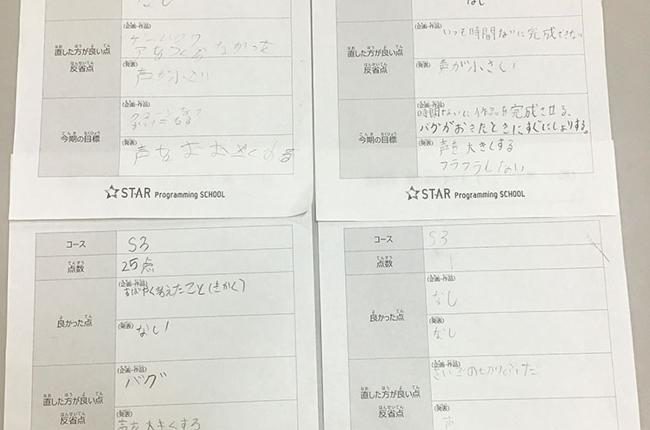 なし
(企画・作品)
直した方が良い点
反省点
(発表)
声が小さい
今期の目標
(企画・作品)
(発表)
声をおおきくする
STAR Programming SCHOOL
なし
(企画・作品)
いつも時間ないに完成できない
直した方が良い点
反省点
(発表)
声が小さい
今期の目標
(企画・作品)
時間ないに作品を完成させる、
バグがおきたときにすぐにしょりする。
(発表)
声を大きくする
フラフラしない
STAR Programming SCHOOL
コース
S3
点数
25点
良かった点
(企画・作品)
すばやく考えたこと(きかく)
(発表)
なし!
直した方が良い点
反省点
(企画・作品)
バグ
(発表)
声を大きくする
コース
S3
点数
良かった点
(企画・作品)
なし
(発表)
なし
直した方が良い点
反省点
(企画・作品)
(発表)
声